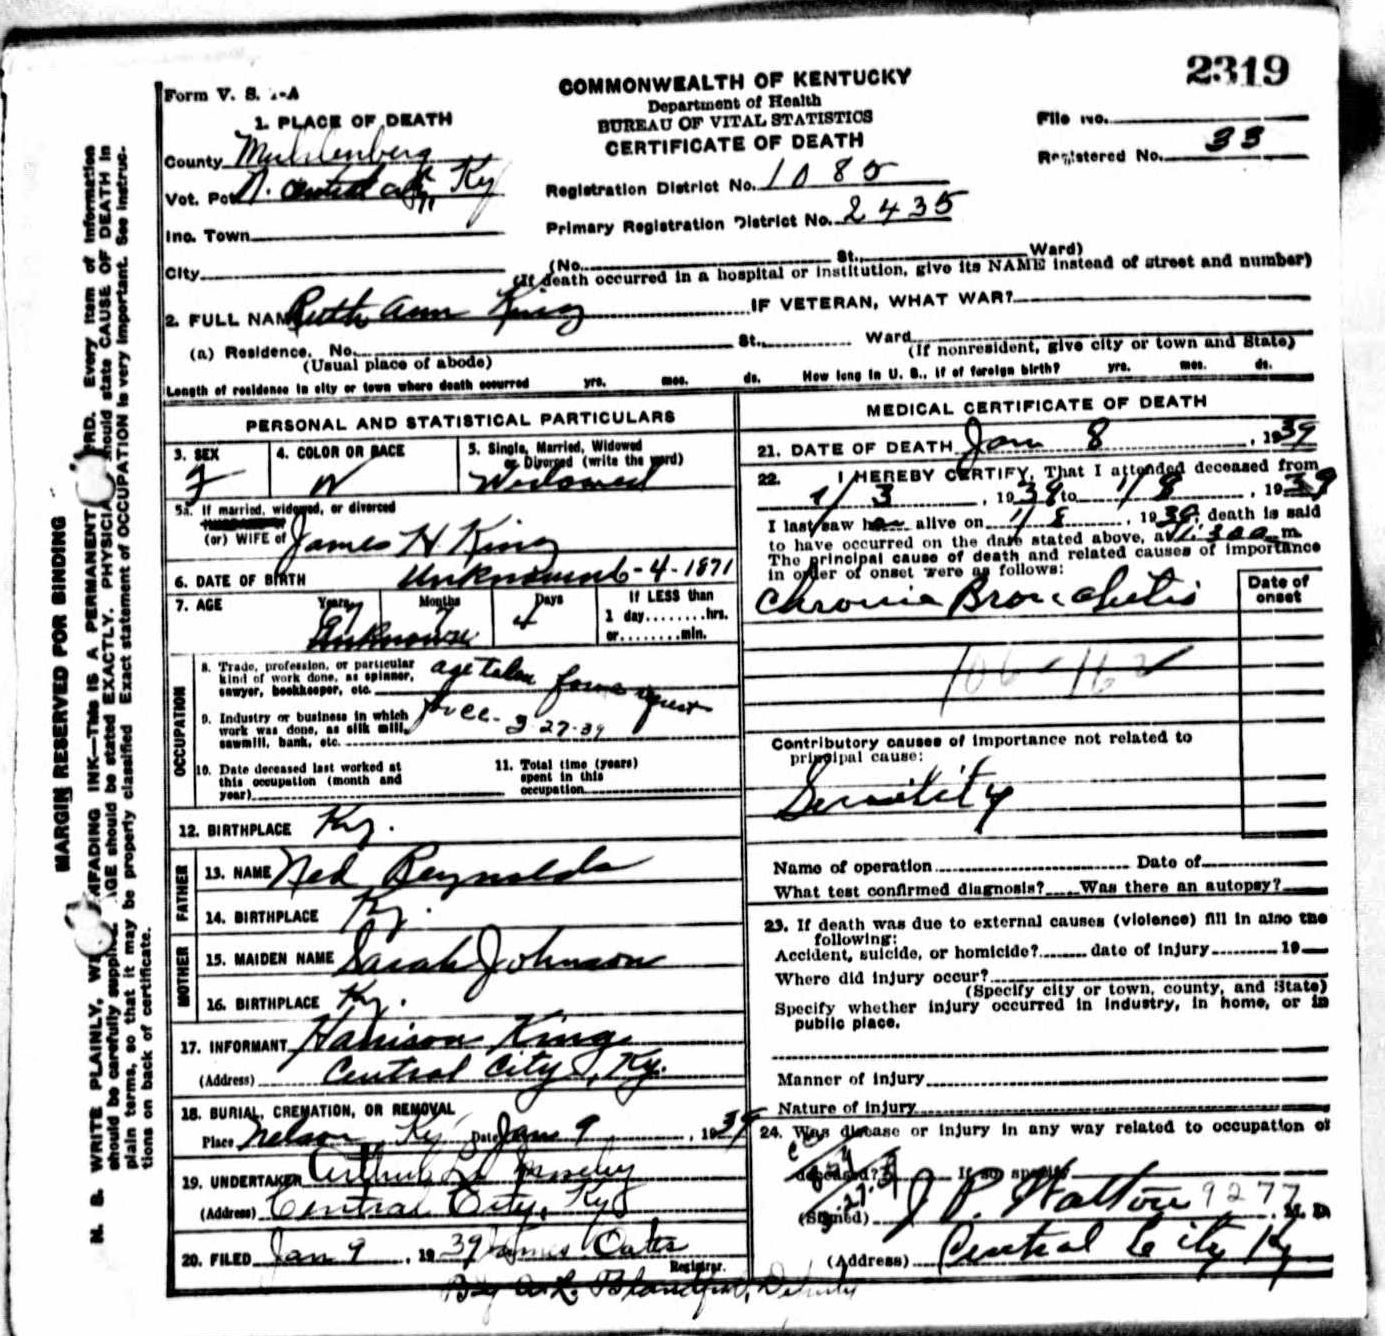 2319
Form V. S. 1-A
COMMONWEALTH OF KENTUCKY
Department of Health
BUREAU OF VITAL STATISTICS
CERTIFICATE OF DEATH
File No.
Registered No. 33
1. PLACE OF DEATH
County Muhlenberg
Vot. Pct. N. Central City, Ky
Inc. Town
City
Registration District No. 1085
Primary Registration District No. 2435
(No. St., Ward)
(If death occurred in a hospital or institution, give its NAME instead of street and number)
2. FULL NAME Ruth Ann King IF VETERAN, WHAT WAR?
(a) Residence. No. St., Ward
(Usual place of abode) (If nonresident, give city or town and State)
Length of residence in city or town where death occurred yrs. mos. ds. How long in U. S., if of foreign birth? yrs. mos. ds.
PERSONAL AND STATISTICAL PARTICULARS
3. SEX F
4. COLOR OR RACE W
5. Single, Married, Widowed or Divorced (write the word) Widowed
5a. If married, widowed, or divorced
(or) WIFE of James H King
6. DATE OF BIRTH Unknown 6-4-1871
7. AGE Years Months Days If LESS than
67 7 4 1 day........hrs.
Unknown or........min.
OCCUPATION
8. Trade, profession, or particular kind of work done, as spinner, sawyer, bookkeeper, etc.
age taken from
9. Industry or business in which work was done, as silk mill, sawmill, bank, etc.
3-27-39
10. Date deceased last worked at this occupation (month and year)
11. Total time (years) spent in this occupation
12. BIRTHPLACE Ky.
FATHER
13. NAME Ned Reynolds
14. BIRTHPLACE Ky.
MOTHER
15. MAIDEN NAME Sarah Johnson
16. BIRTHPLACE Ky.
17. INFORMANT Harrison King
(Address) Central City, Ky.
18. BURIAL, CREMATION, OR REMOVAL
Place Nelson, Ky Date Jan 9, 1939
19. UNDERTAKER Arthur L. Moseley
(Address) Central City, Ky
20. FILED Jan 9, 1939 James Oates
Registrar.
By A. L. Blandford, Deputy
MEDICAL CERTIFICATE OF DEATH
21. DATE OF DEATH Jan 8, 1939
22. I HEREBY CERTIFY, That I attended deceased from
1/3, 1938 to 1/8, 1939
I last saw her alive on 1/8, 1939, death is said
to have occurred on the date stated above, at 1:30 a m.
The principal cause of death and related causes of importance
in order of onset were as follows:
Date of onset
Chronic Bronchitis
106-162
Contributory causes of importance not related to
principal cause:
Senility
Name of operation Date of
What test confirmed diagnosis? Was there an autopsy?
23. If death was due to external causes (violence) fill in also the
following:
Accident, suicide, or homicide? date of injury 19
Where did injury occur?
(Specify city or town, county, and State)
Specify whether injury occurred in industry, in home, or in
public place.
Manner of injury
Nature of injury
24. Was disease or injury in any way related to occupation of
deceased? If so specify
(Signed) J P. Walton 9277 M. D.
(Address) Central City Ky
MARGIN RESERVED FOR BINDING
N. B. WRITE PLAINLY, WITH UNFADING INK—THIS IS A PERMANENT RECORD. Every item of information
should be carefully supplied. AGE should be stated EXACTLY. PHYSICIANS should state CAUSE OF DEATH in
plain terms, so that it may be properly classified. Exact statement of OCCUPATION is very important. See instruc-
tions on back of certificate.